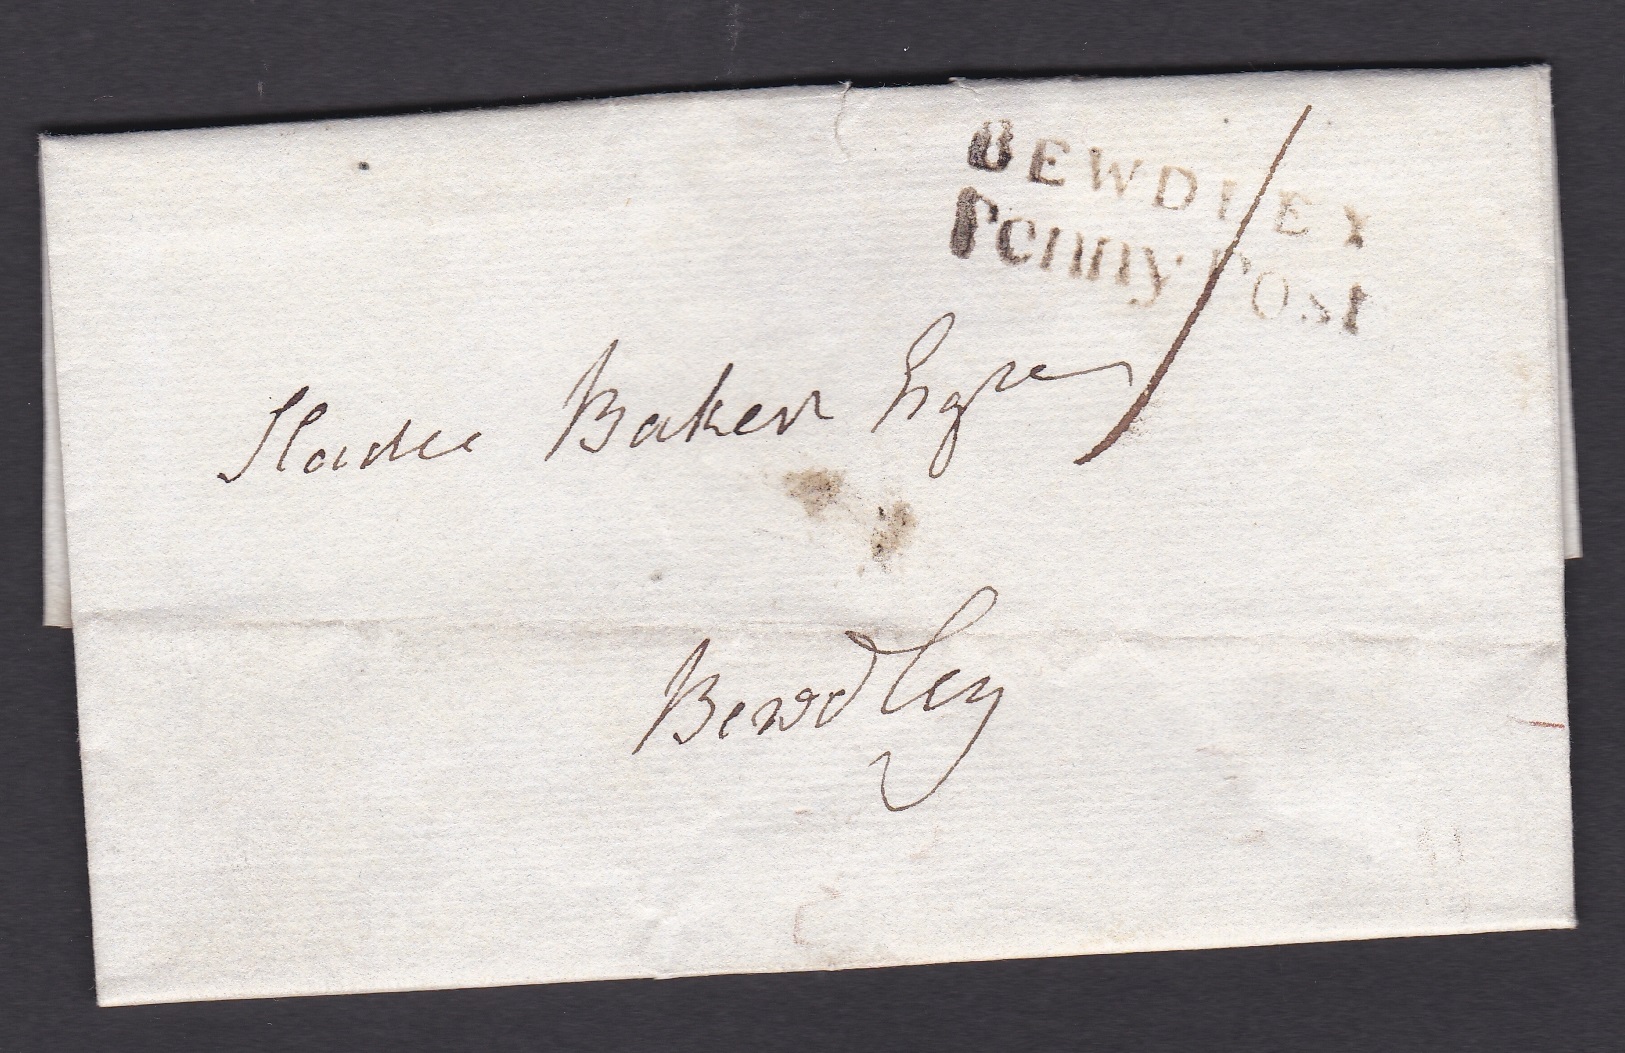 BEWDLEY
Penny Post
/
Slade Baker Esqre
Bewdley